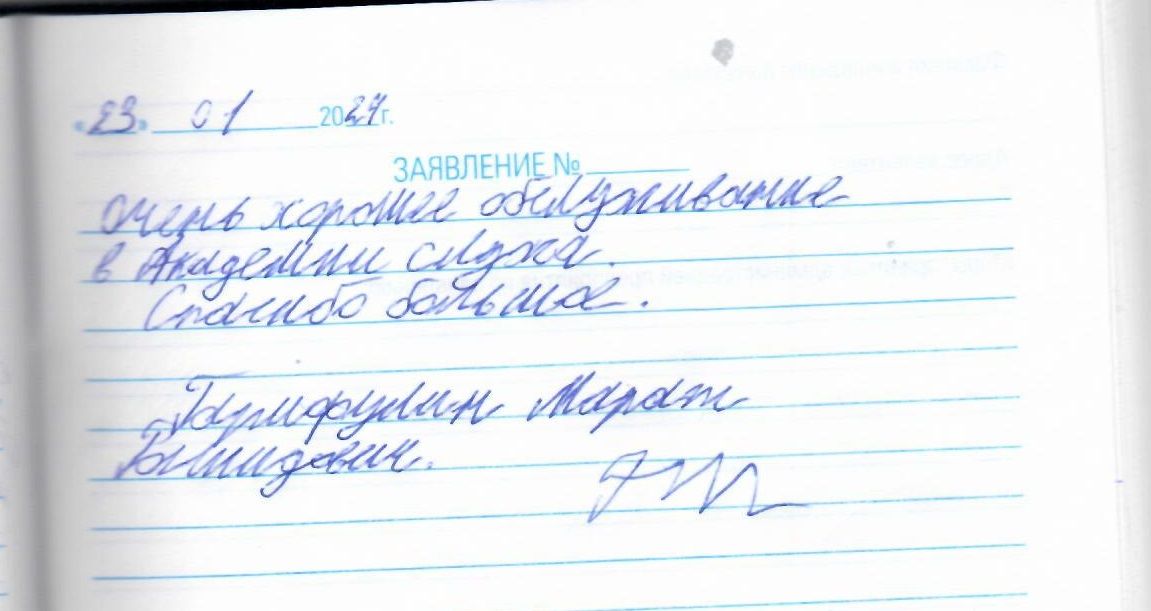 «23» 01 2024г.
ЗАЯВЛЕНИЕ №
Очень хорошее обслуживание
в Академии слуха.
Спасибо большое.
Марат